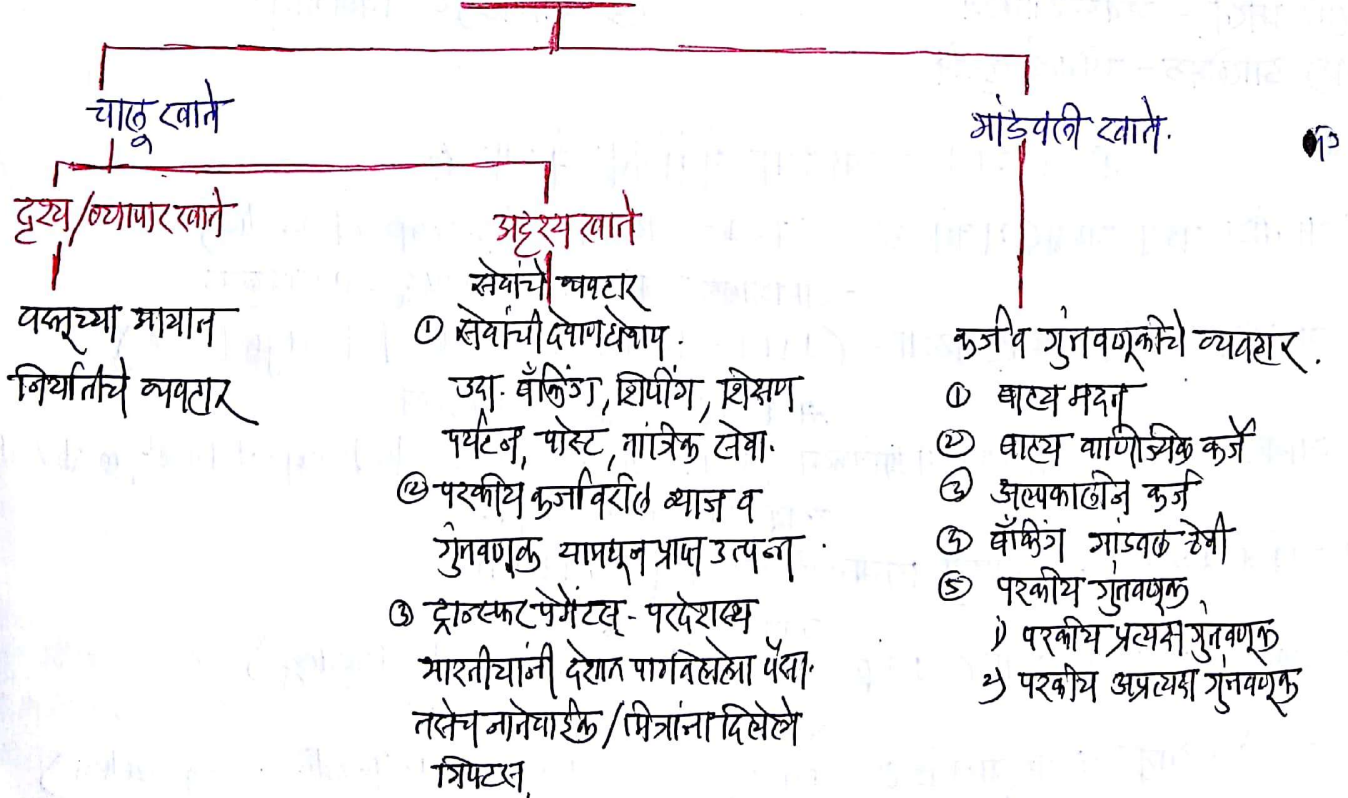 चालू खाते
भांडवली खाते.
दृश्य/व्यापार खाते
अदृश्य खाते
वस्तूच्या आयात
निर्यातीचे व्यवहार
सेवांचे व्यवहार
① सेवांची देवाणघेवाण.
उदा. बँकिंग, शिपींग, शिक्षण
पर्यटन, पोस्ट, तांत्रिक सेवा.
② परकीय कर्जावरील व्याज व
गुंतवणूक यामधून प्राप्त उत्पन्न.
③ ट्रान्स्फर पेमेंटस् - परदेशस्थ
भारतीयांनी देशात पाठविलेला पैसा.
तसेच नातेवाईक/मित्रांना दिलेले
गिफ्टस्.
कर्ज व गुंतवणूकीचे व्यवहार.
① बाह्य मदत
② बाह्य वाणिज्यिक कर्जे
③ अल्पकालीन कर्ज
④ बँकिंग भांडवल ठेवी
⑤ परकीय गुंतवणूक
१) परकीय प्रत्यक्ष गुंतवणूक
२) परकीय अप्रत्यक्ष गुंतवणूक